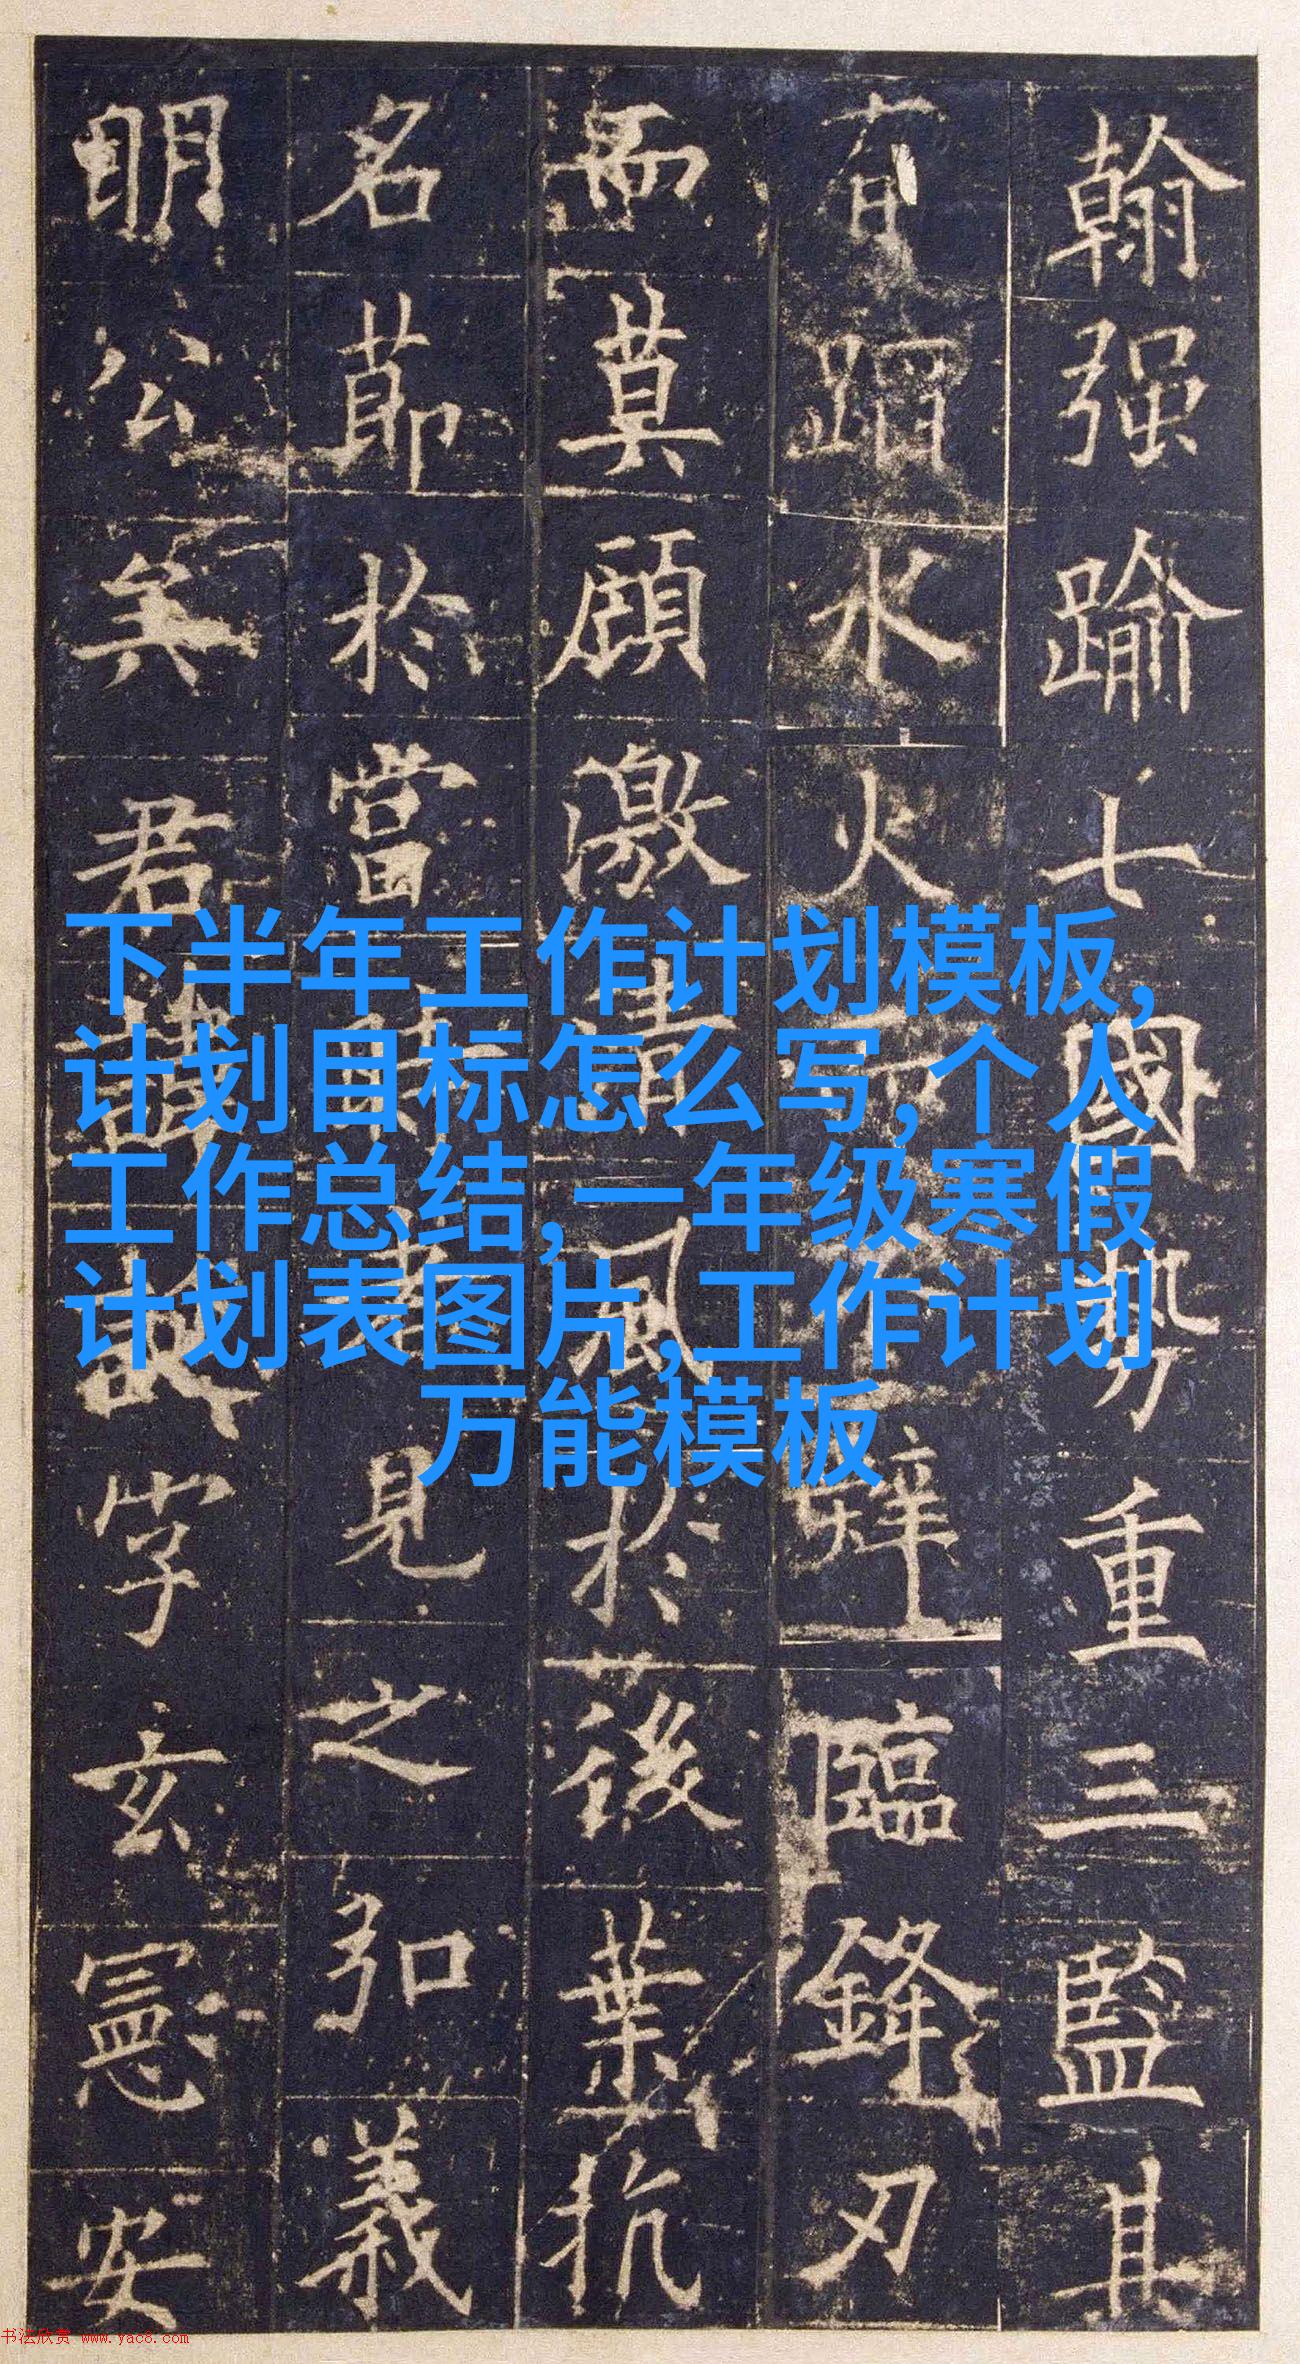 翰强踰七國勢重三監其
有蹈水火而不辭臨鋒刃
而莫顧激清風於後葉抗
名節於當時者見之弘義
明公矣君諱誕字玄憲安
下半年工作计划模板,
计划目标怎么写,个人
工作总结,一年级寒假
计划表图片,工作计划
万能模板
书法欣赏 www.yac8.com